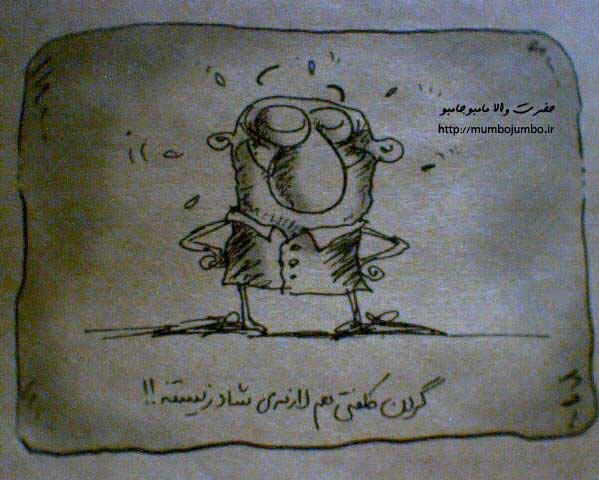 حضرت والا مامبو جامبو
http://mumbojumbo.ir
گردن کلفتی هم لازمه‌ی شاد زیستنه!!